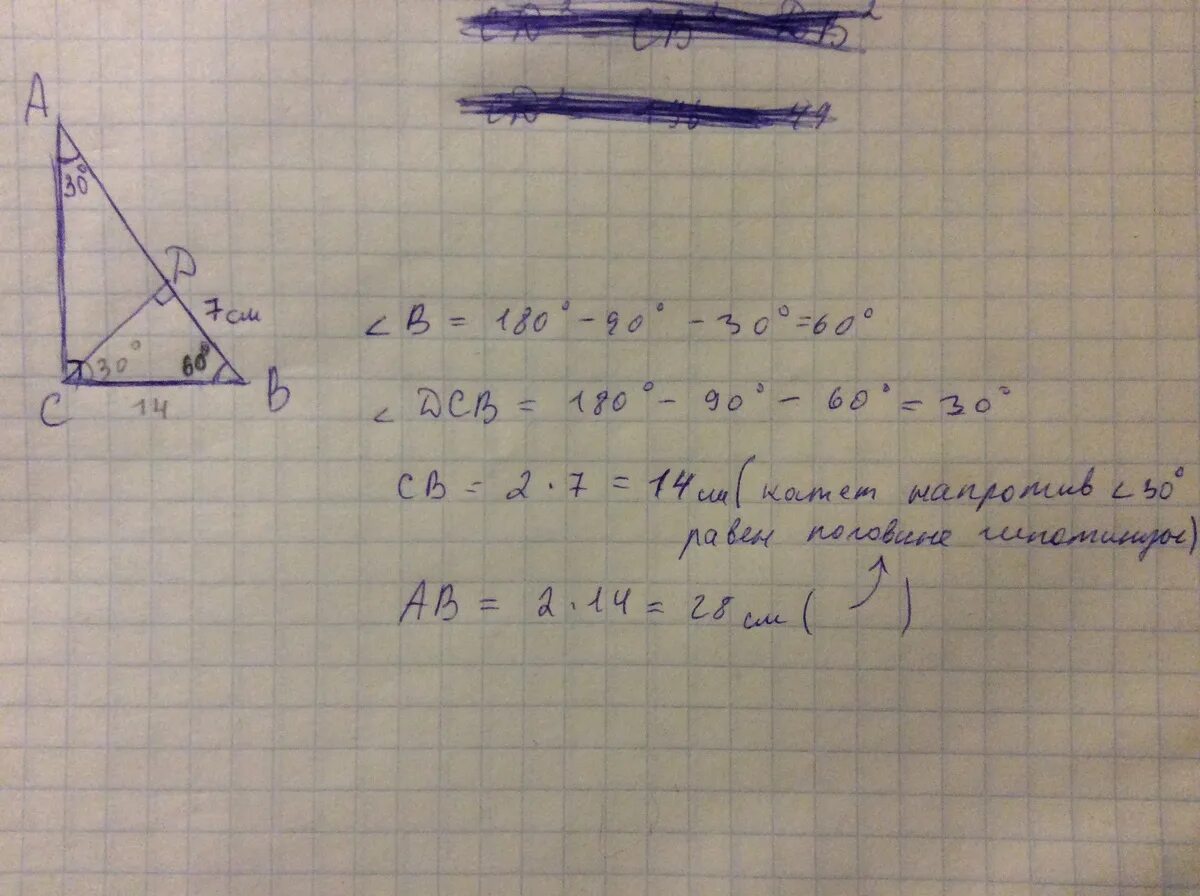 A
30°
D
7 см
30°
60°
C
14
B
∠ B = 180° - 90° - 30° = 60°
∠ DCB = 180° - 90° - 60° = 30°
CB = 2 · 7 = 14 см ( катет напротив ∠ 30°
равен половине гипотинузы)
AB = 2 · 14 = 28 см ( )